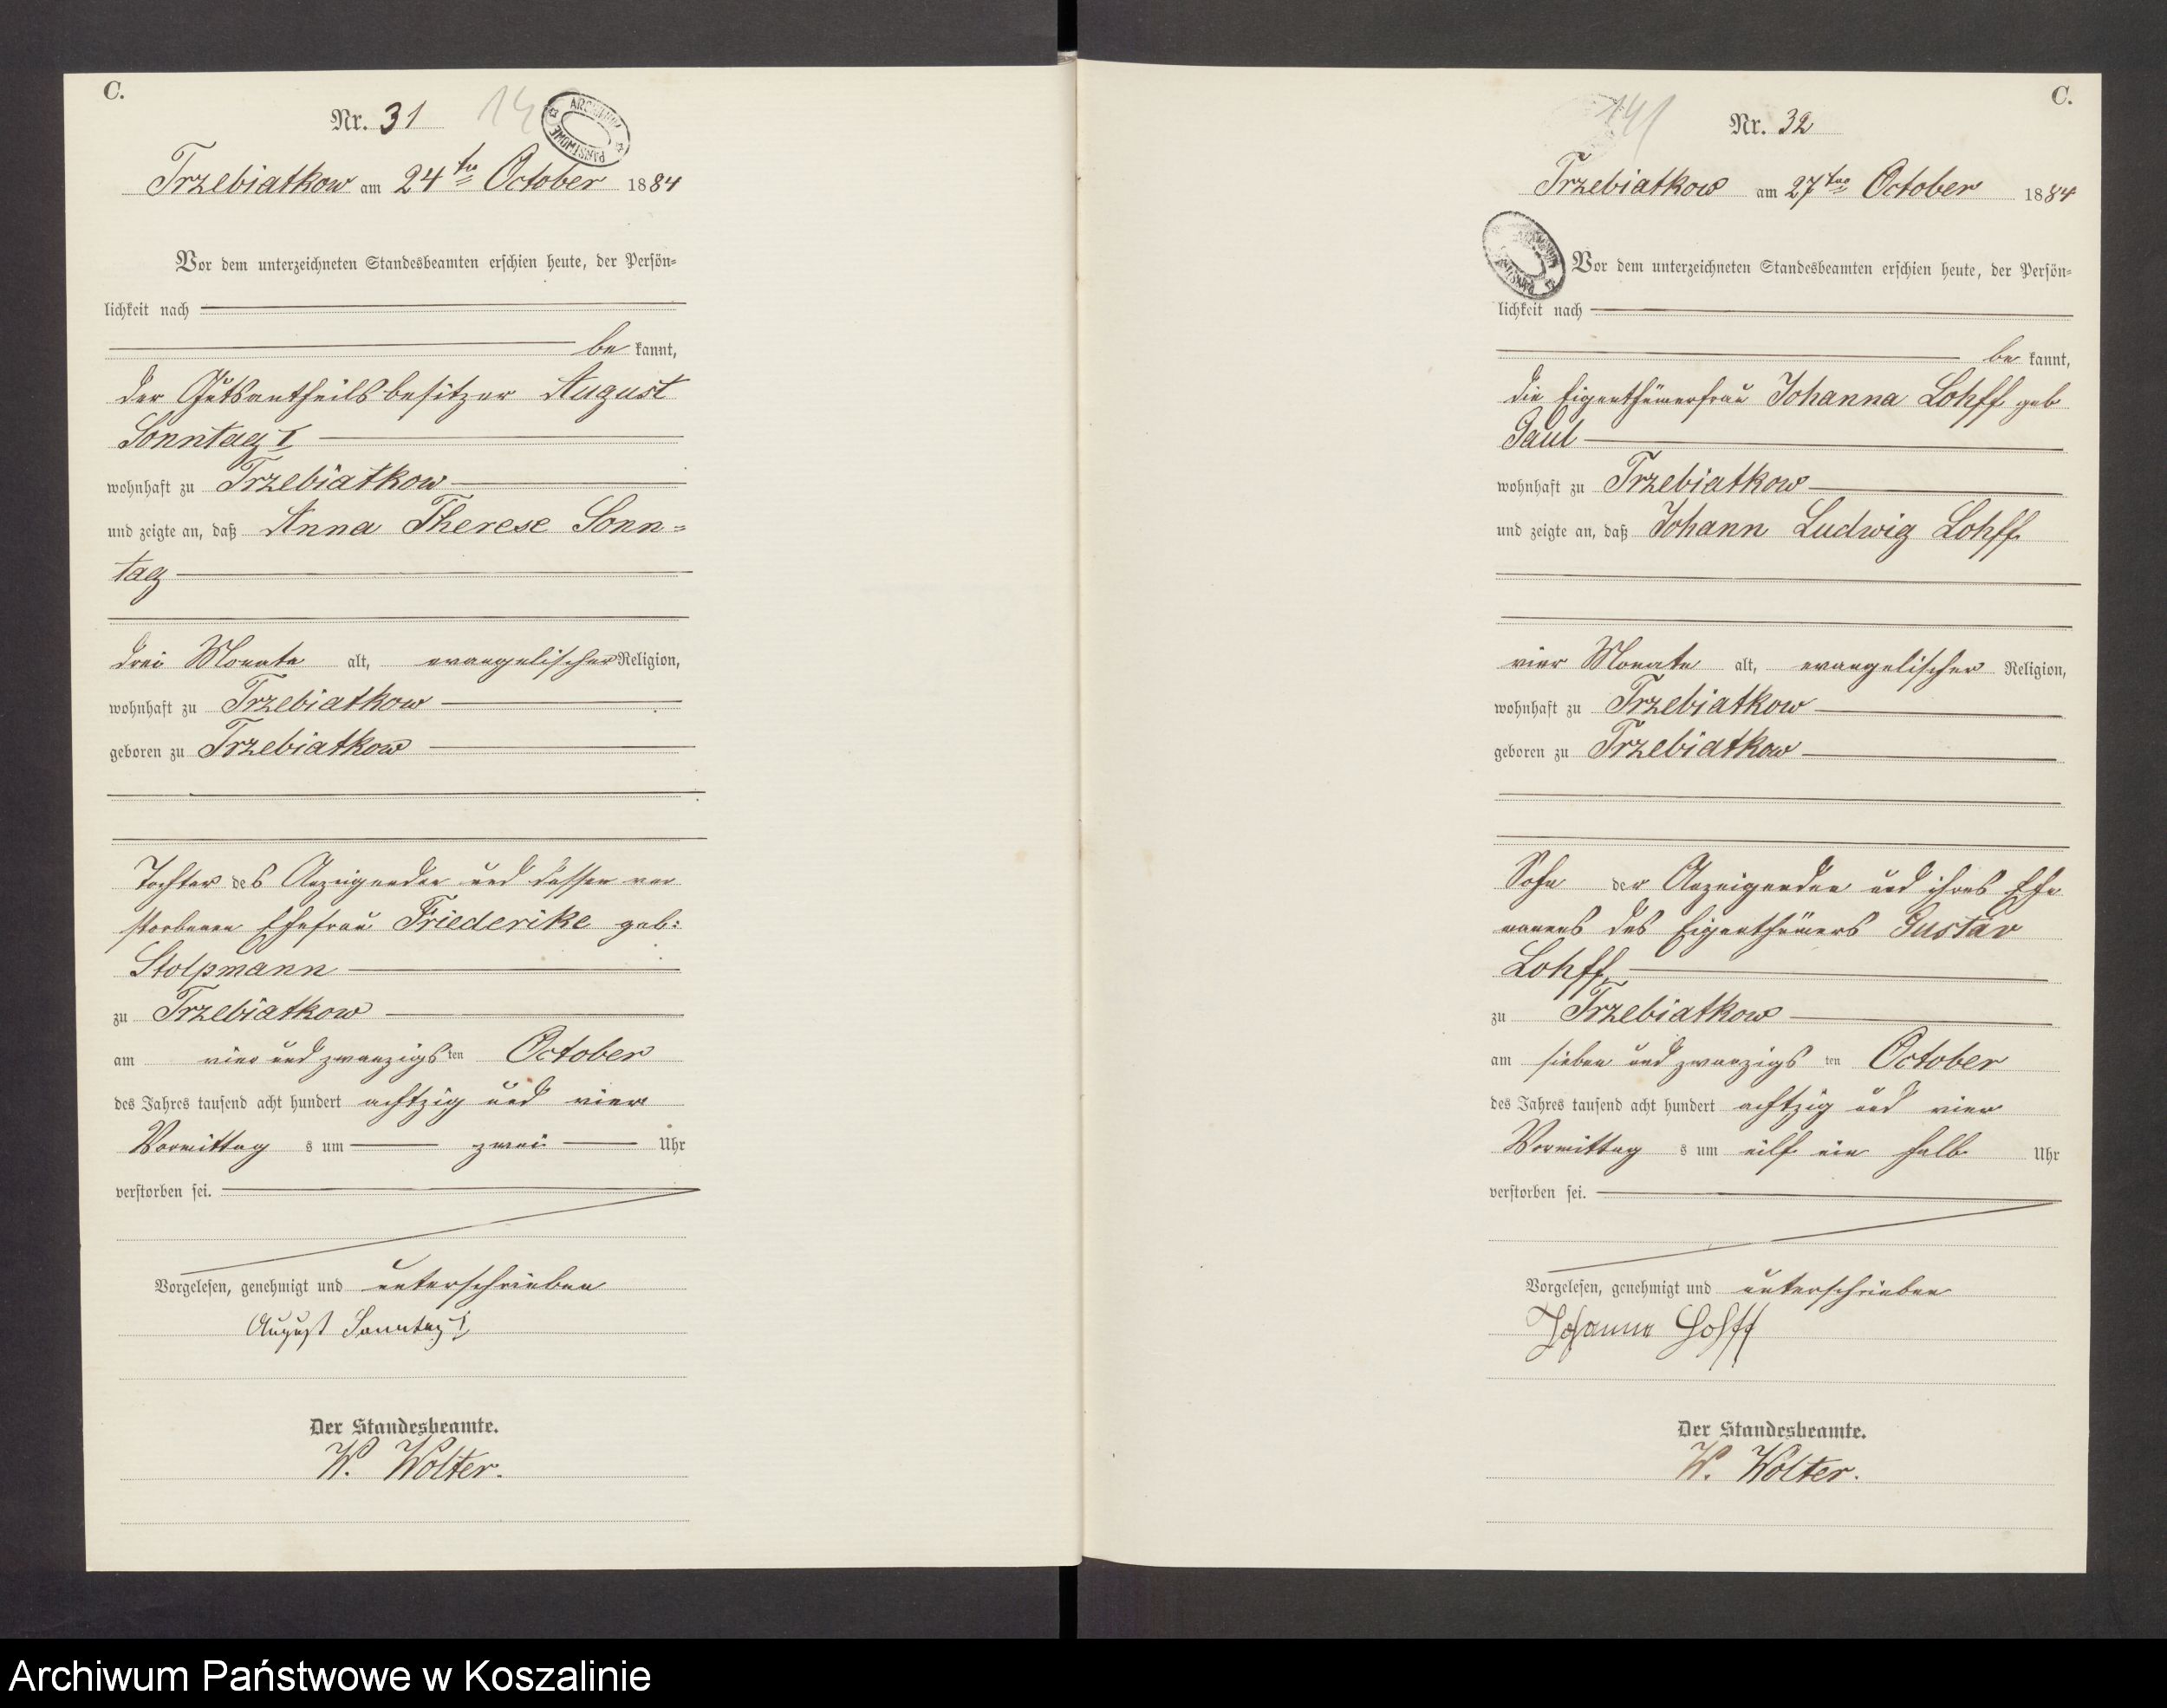 C.
Nr. 31
Trzebiatkow am 24ten October 1884
Vor dem unterzeichneten Standesbeamten erschien heute, der Persön-
lichkeit nach
be kannt,
der Gutsantheilsbesitzer August
Sonntag I
wohnhaft zu Trzebiatkow
und zeigte an, daß Anna Therese Sonn=
tag
drei Monate alt, evangelischer Religion,
wohnhaft zu Trzebiatkow
geboren zu Trzebiatkow
Tochter des Anzeigenden und dessen ver
storbenen Ehefrau Friederike geb:
Stolpmann
zu Trzebiatkow
am vier und zwanzigsten October
des Jahres tausend acht hundert achtzig und vier
Vormittag s um zwei Uhr
verstorben sei.
Vorgelesen, genehmigt und unterschrieben
August Sonntag I
Der Standesbeamte.
W. Wolter.
C.
141
Nr. 32
Trzebiatkow am 27ten October 1884
Vor dem unterzeichneten Standesbeamten erschien heute, der Persön-
lichkeit nach
be kannt,
die Eigenthümerfrau Johanna Lohff geb
Paul
wohnhaft zu Trzebiatkow
und zeigte an, daß Johann Ludwig Lohff
vier Monate alt, evangelischer Religion,
wohnhaft zu Trzebiatkow
geboren zu Trzebiatkow
Sohn der Anzeigenden und ihres Ehe
manns des Eigenthümers Gustav
Lohff
zu Trzebiatkow
am sieben und zwanzigs ten October
des Jahres tausend acht hundert achtzig und vier
Vormittag s um eilf ein halb Uhr
verstorben sei.
Vorgelesen, genehmigt und unterschrieben
Johanna Lohff
Der Standesbeamte.
W. Wolter.
Archiwum Państwowe w Koszalinie